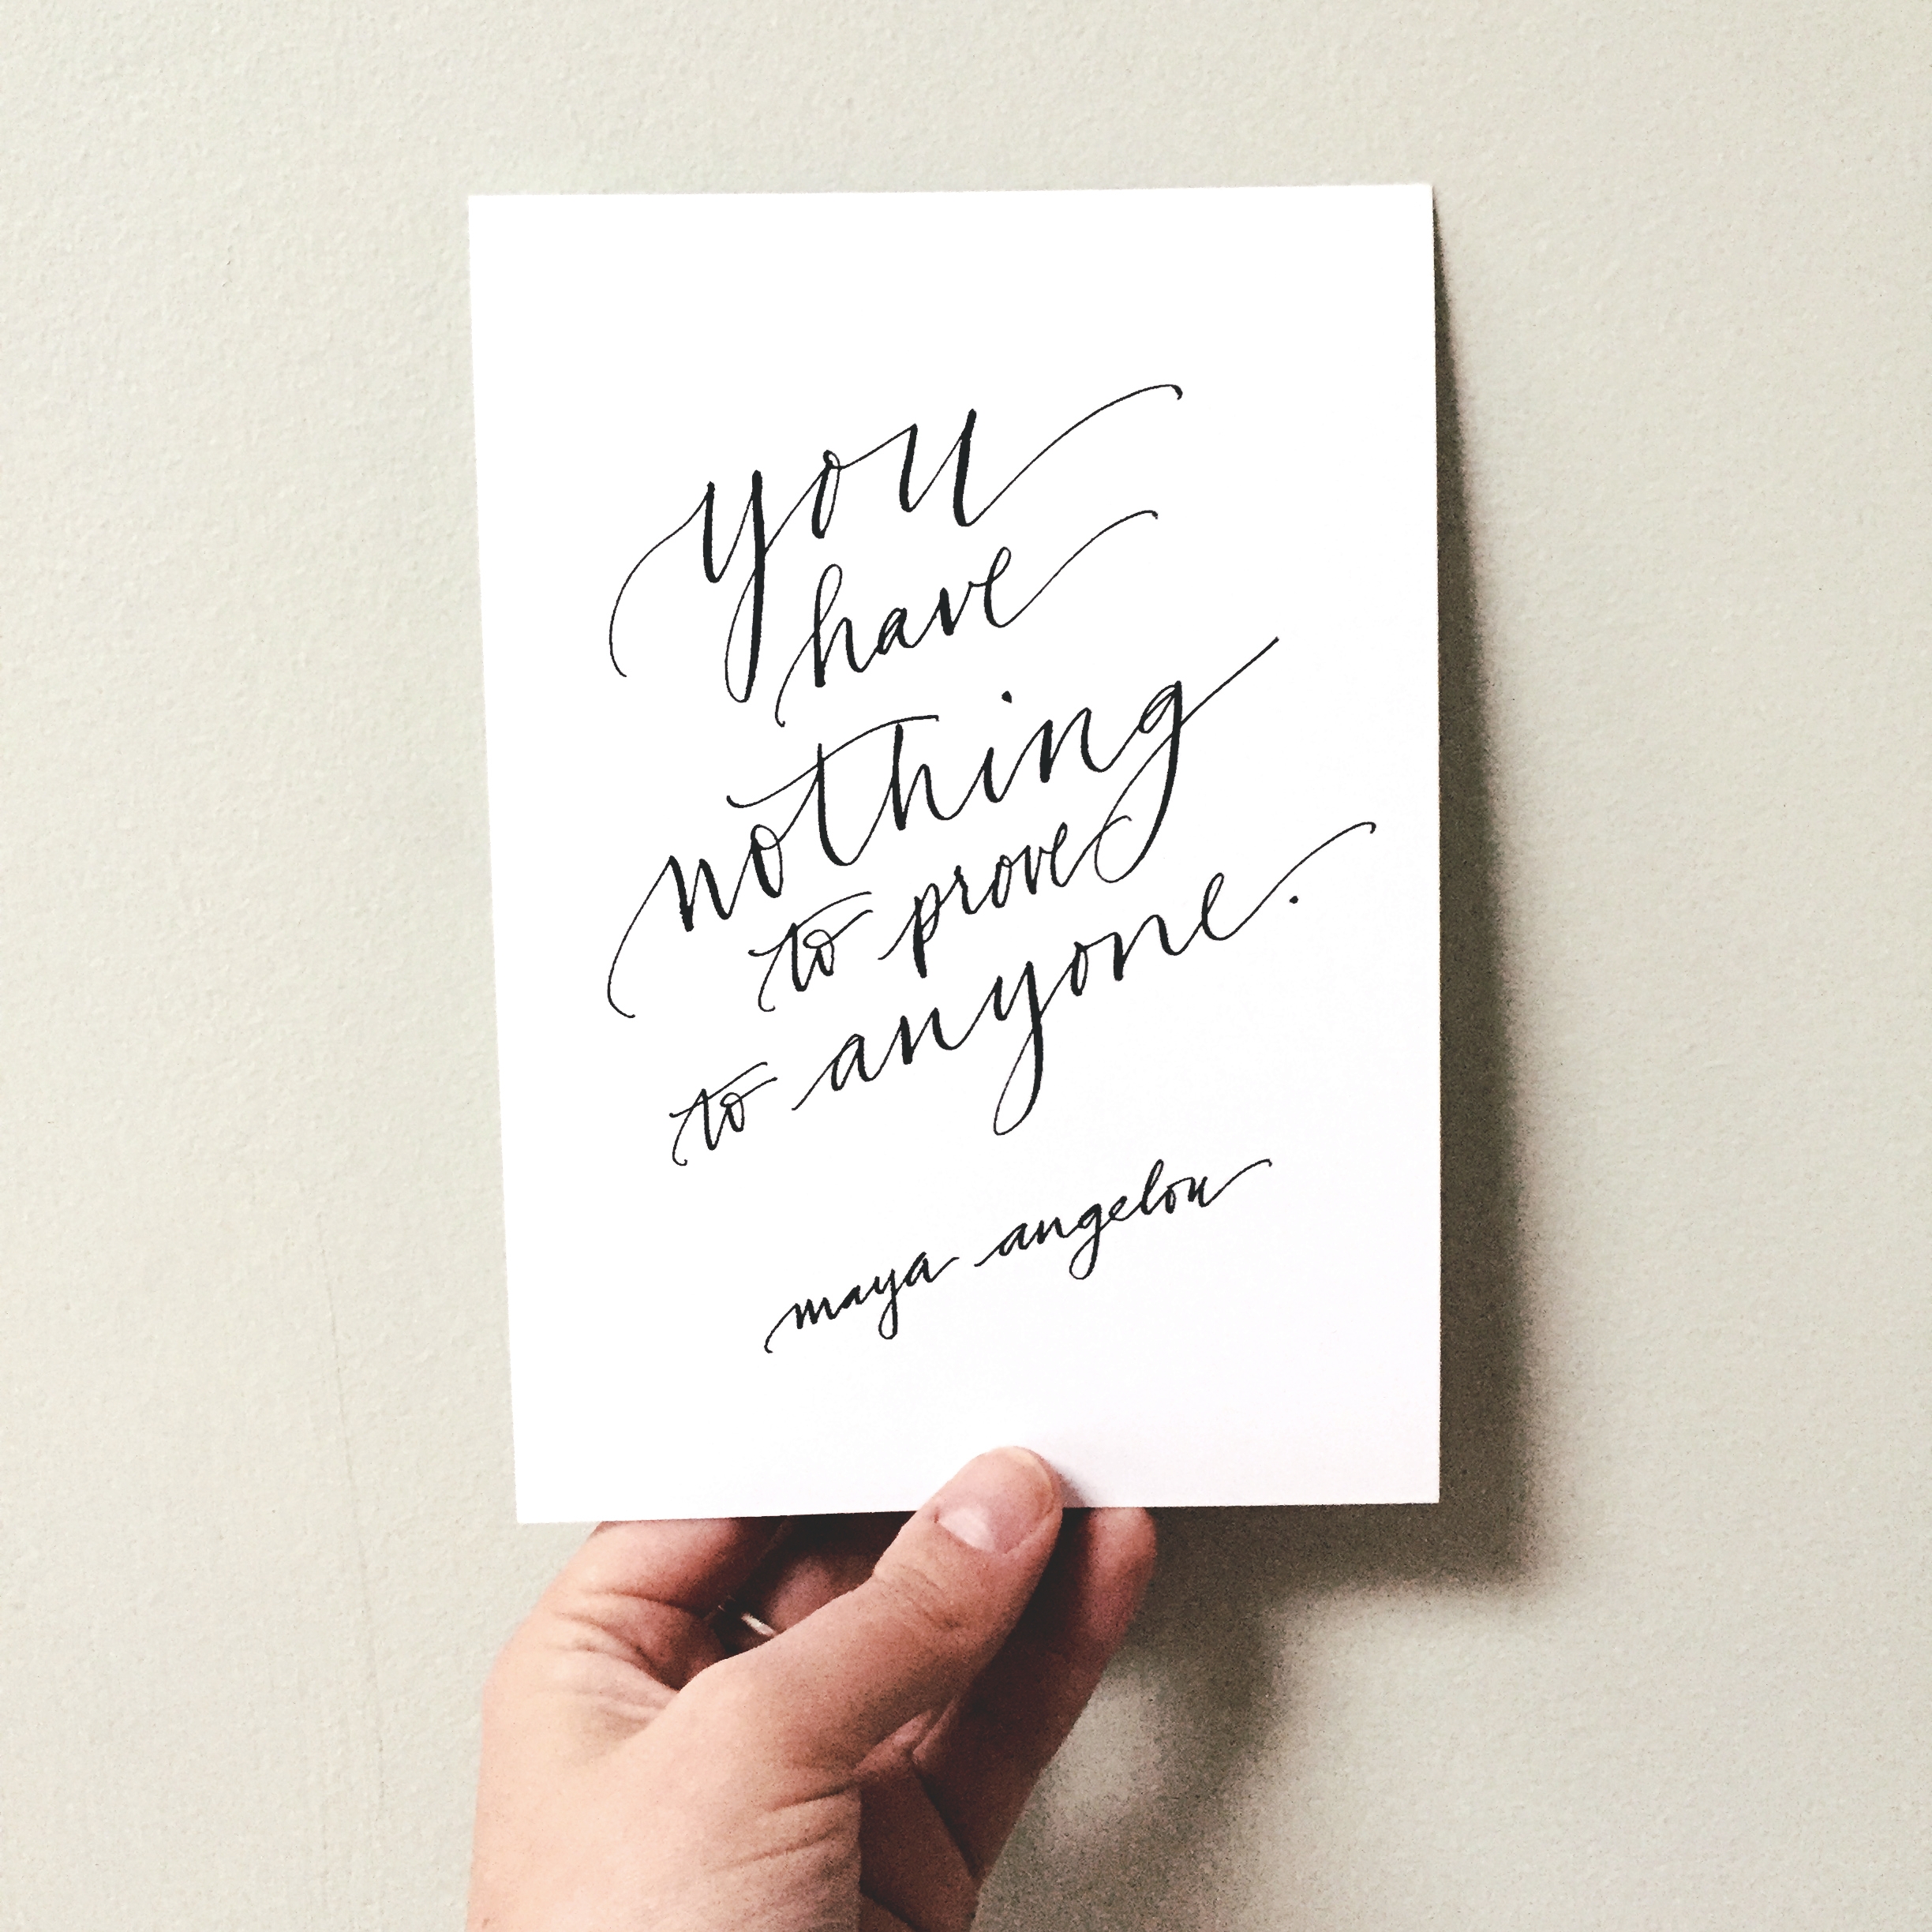 you
have
nothing
to prove
to anyone.
maya angelou